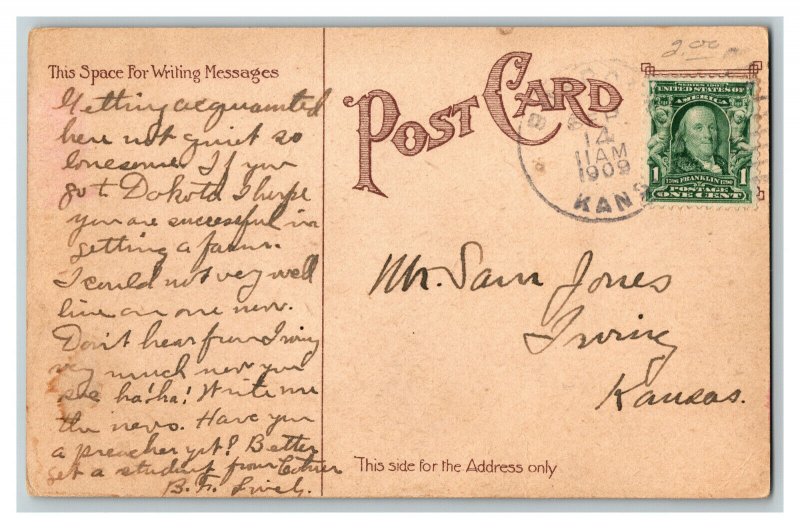 This Space For Writing Messages
POST CARD
2.00
14
11 AM
1909
KANS
UNITED STATES OF
AMERICA
1 FRANKLIN 1
POSTAGE
ONE CENT
Getting acquainted
here not quiet so
lonesome. If you
go to Dakota I hope
you are successful in
getting a farm.
I could not very well
live on one now.
Don't hear from Irving
very much now you
see ha! ha! Write me
the news. Have you
a preacher yet? Better
get a student from Cotner
B. F. Lively.
Mr. Sam Jones
Irving
Kansas.
This side for the Address only